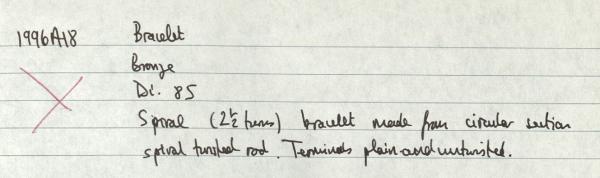 1996A18 Bracelet
Bronze
Di. 85
Spiral (2½ turns) bracelet made from circular section
spiral twisted rod. Terminals plain and untwisted.